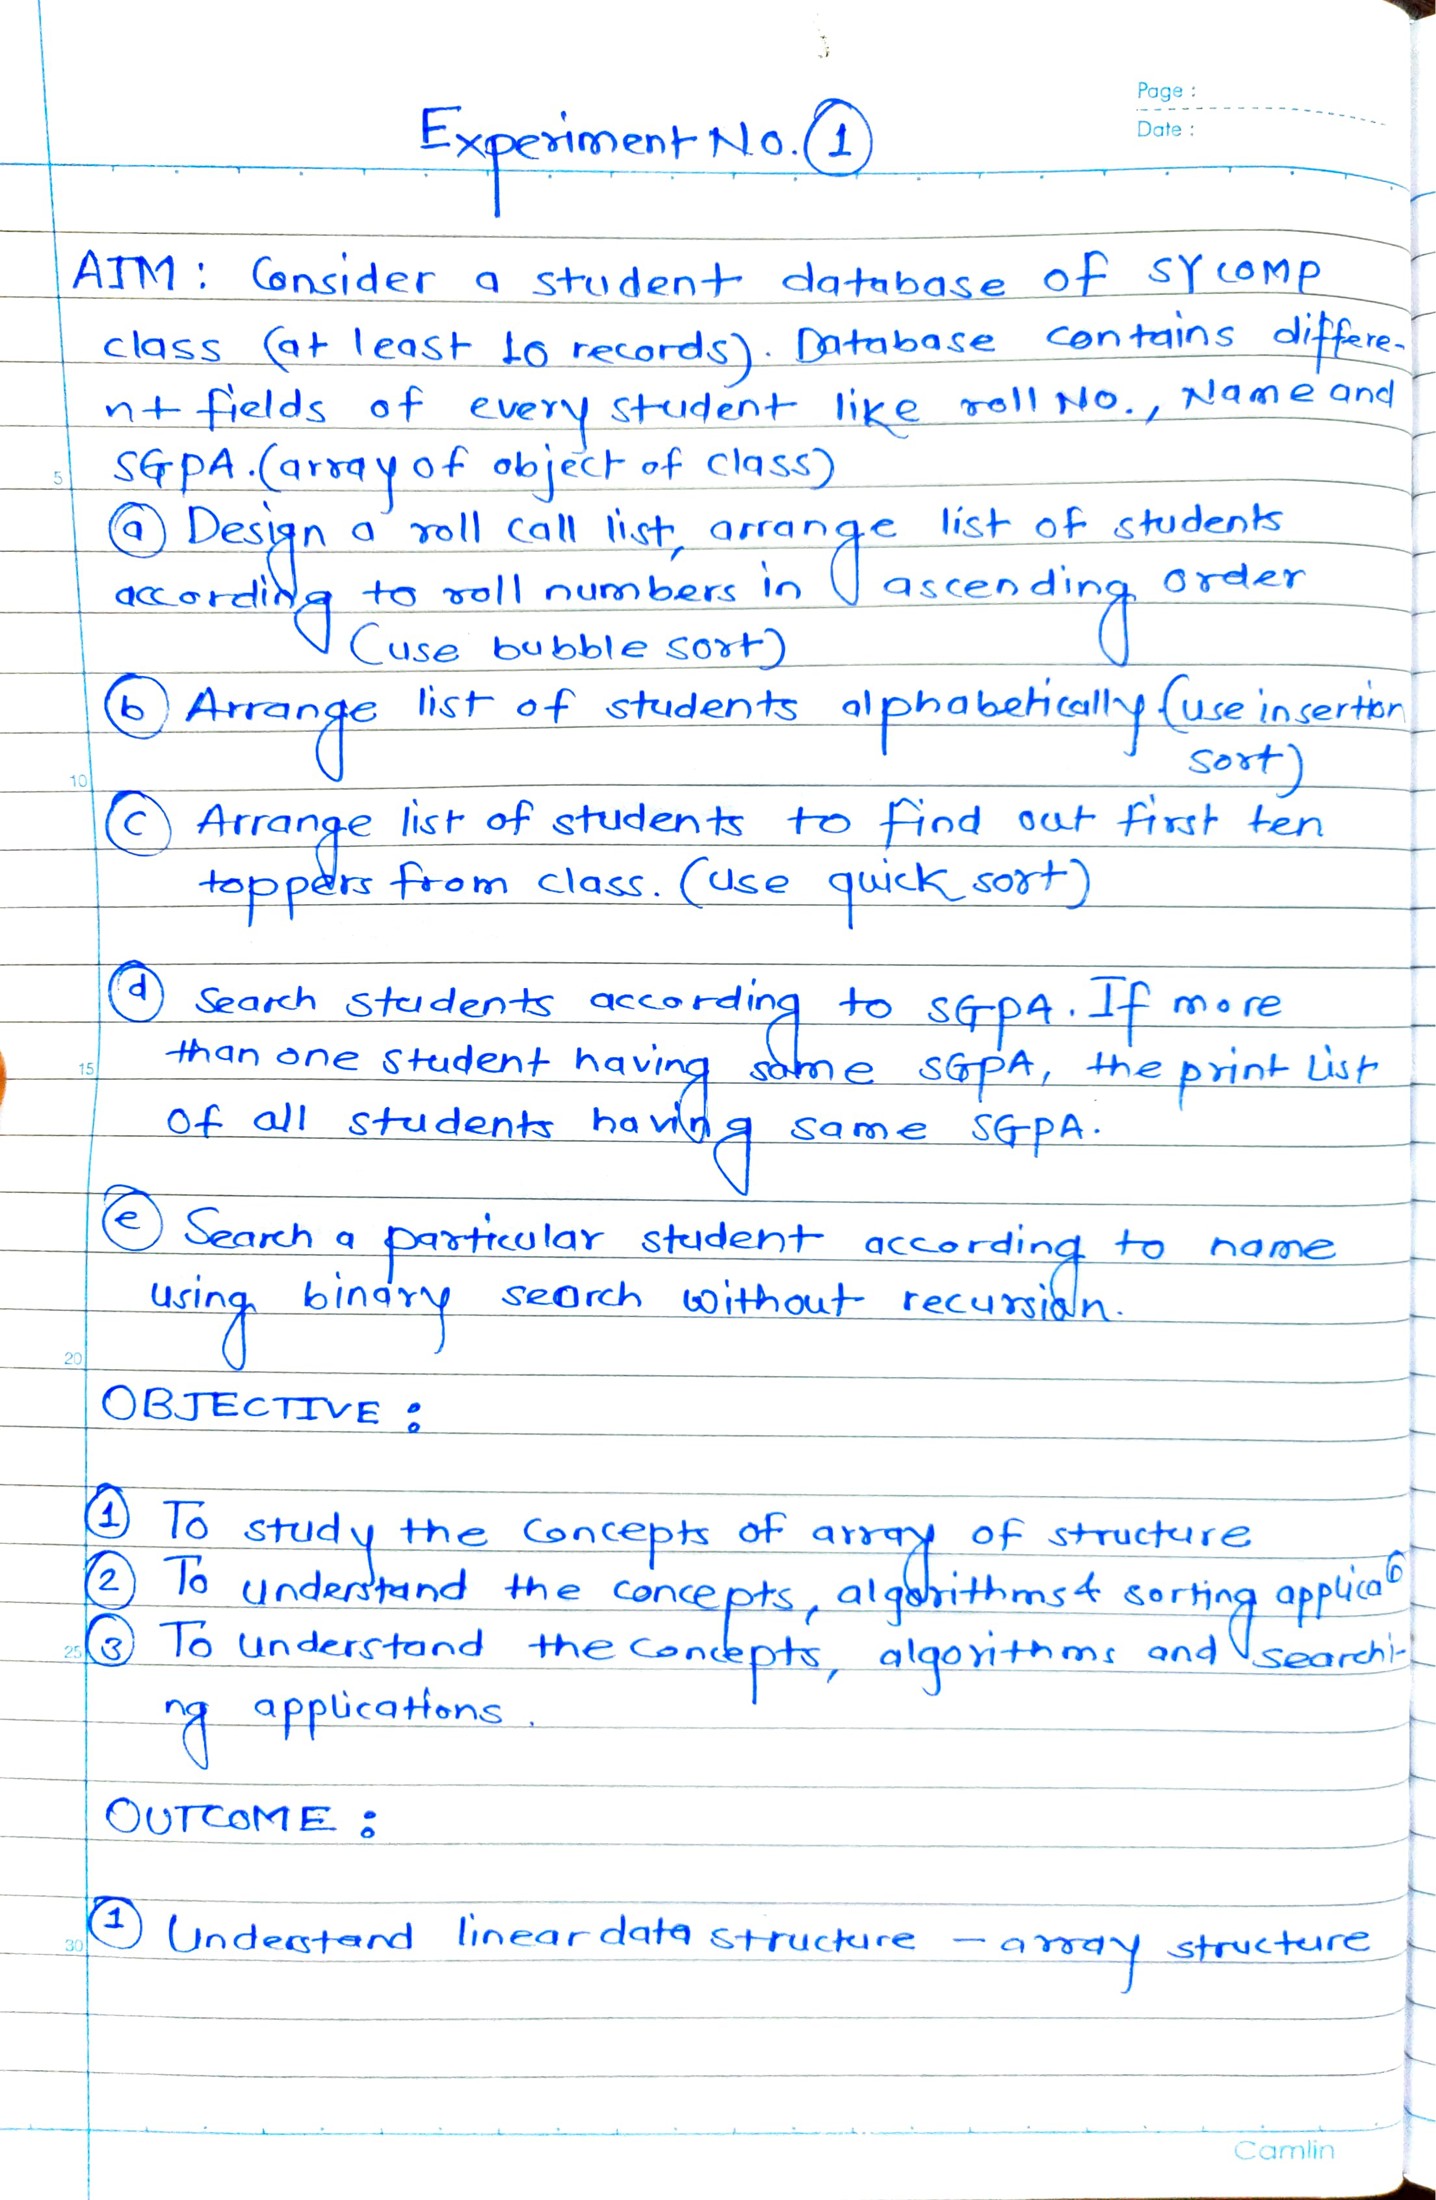 Page :
Date :
Experiment No. 1
AIM : Consider a student database of SY COMP
class (at least 10 records). Database contains differe-
nt fields of every student like roll No., Name and
5
SGPA. (array of object of class)
a Design a roll call list, arrange list of students
according to roll numbers in ascending order
(use bubble sort)
b Arrange list of students alphabetically (use insertion
sort)
10
c Arrange list of students to find out first ten
toppers from class. (use quick sort)
d Search students according to SGPA. If more
15
than one student having same SGPA, the print list
of all students having same SGPA.
e Search a particular student according to name
using binary search without recursion.
20
OBJECTIVE :
1 To study the concepts of array of structure
2 To understand the concepts, algorithms & sorting
25
3 To understand the concepts, algorithms and searchi-
ng applications.
OUTCOME :
1 Understand linear data structure - array structure
30
Camlin